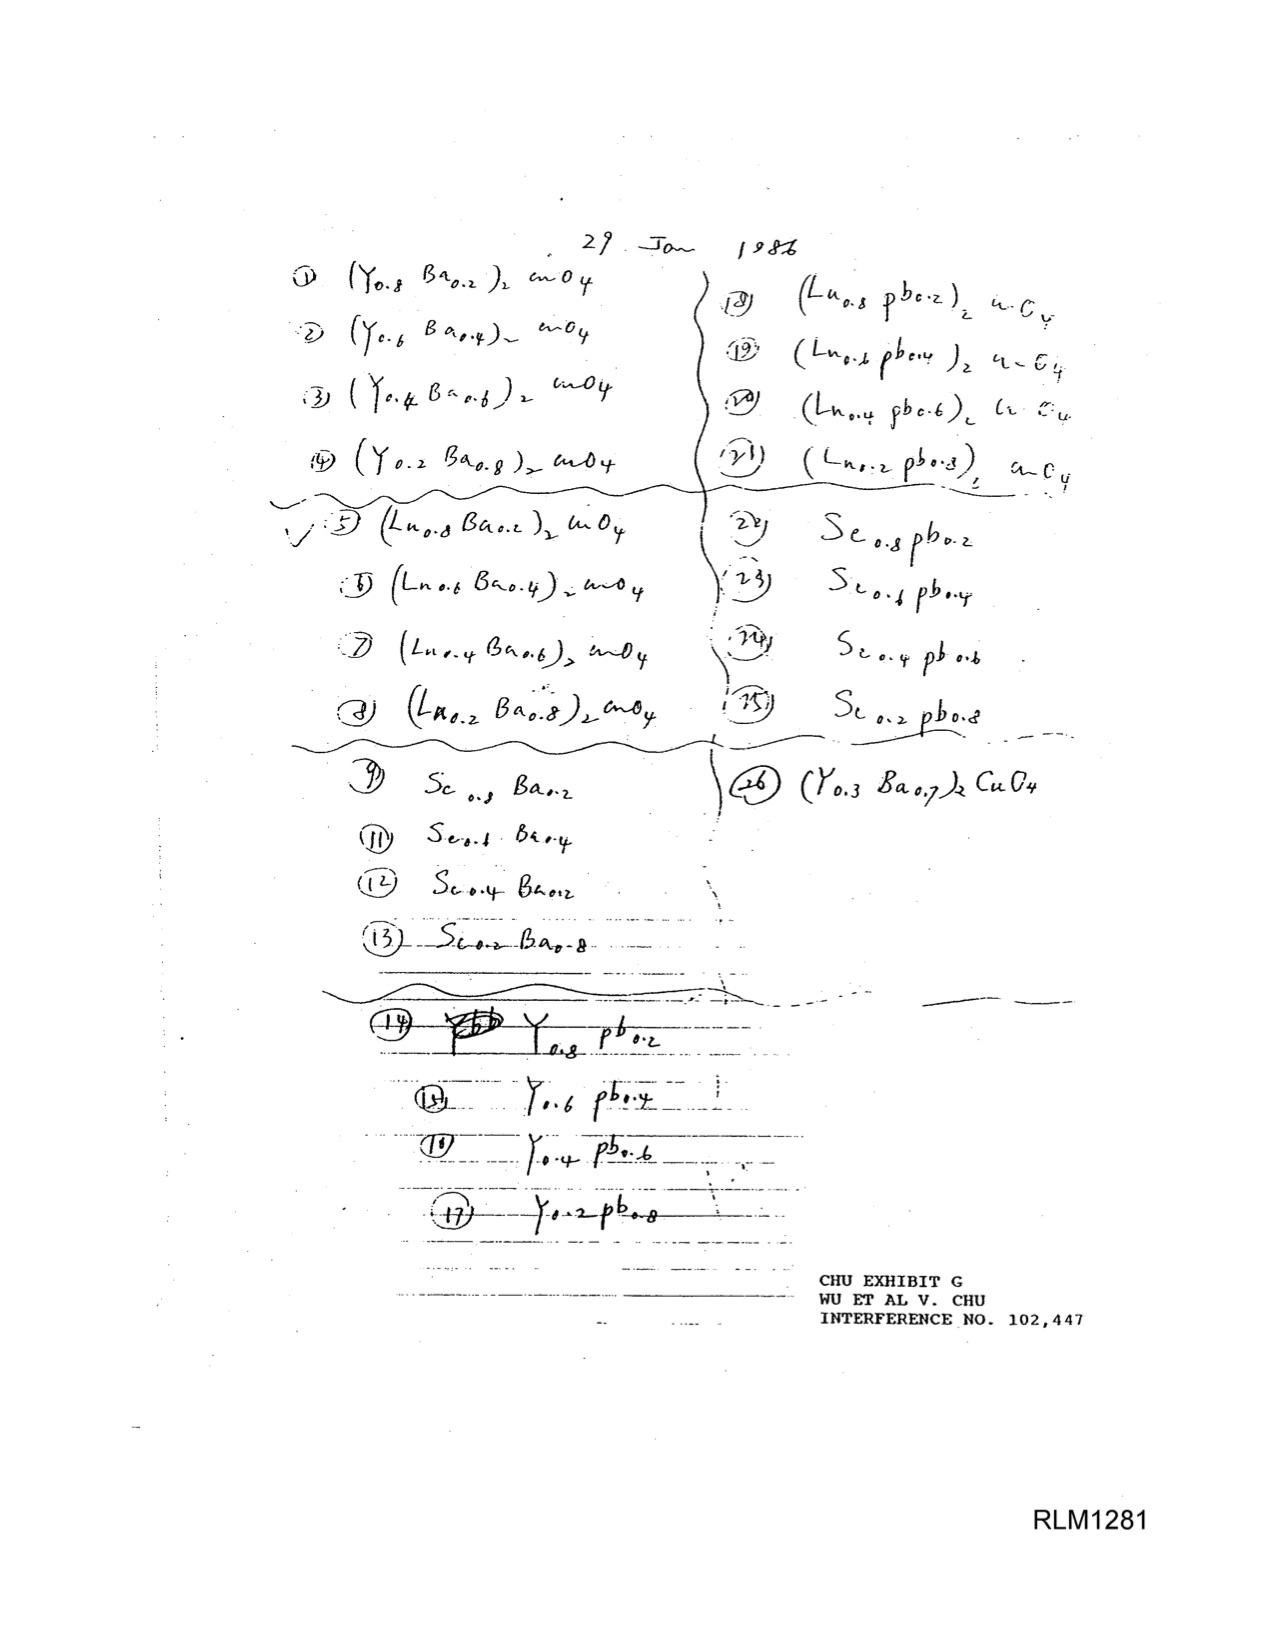 29 Jan 1986
① (Y0.8 Ba0.2)2 CuO4
② (Y0.6 Ba0.4)2 CuO4
③ (Y0.4 Ba0.6)2 CuO4
④ (Y0.2 Ba0.8)2 CuO4
✓ ⑤ (Lu0.8 Ba0.2)2 CuO4
⑥ (Lu0.6 Ba0.4)2 CuO4
⑦ (Lu0.4 Ba0.6)2 CuO4
⑧ (Lu0.2 Ba0.8)2 CuO4
⑨ Sc0.8 Ba0.2
⑪ Sc0.6 Ba0.4
⑫ Sc0.4 Ba0.2
⑬ Sc0.2 Ba0.8
⑭ Y0.8 pb0.2
⑮ Y0.6 pb0.4
⑯ Y0.4 pb0.6
⑰ Y0.2 pb0.8
⑱ (Lu0.8 pb0.2)2 CuO4
⑲ (Lu0.6 pb0.4)2 CuO4
⑳ (Lu0.4 pb0.6)2 CuO4
㉑ (Lu0.2 pb0.8)2 CuO4
㉒ Sc0.8 pb0.2
㉓ Sc0.6 pb0.4
㉔ Sc0.4 pb0.6
㉕ Sc0.2 pb0.8
㉖ (Y0.3 Ba0.7)2 CuO4
CHU EXHIBIT G
WU ET AL V. CHU
INTERFERENCE NO. 102,447
RLM1281